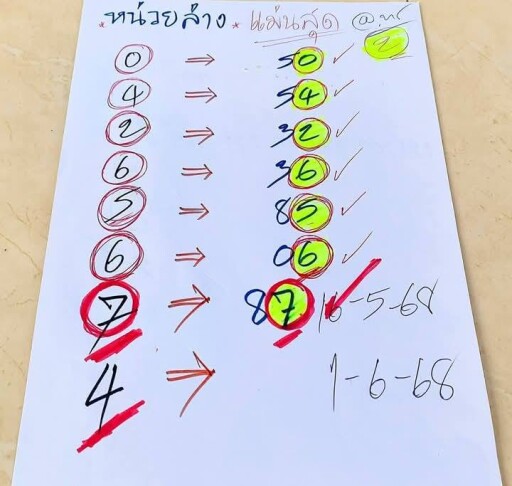 * หน่วยล่าง * แม่นสุด
2
0 ⇒ 50 ✓
4 ⇒ 54 ✓
2 ⇒ 32 ✓
6 ⇒ 36 ✓
5 ⇒ 85 ✓
6 ⇒ 06 ✓
7 ⇒ 87 ✓ 16-5-68
4 ⇒ 1-6-68